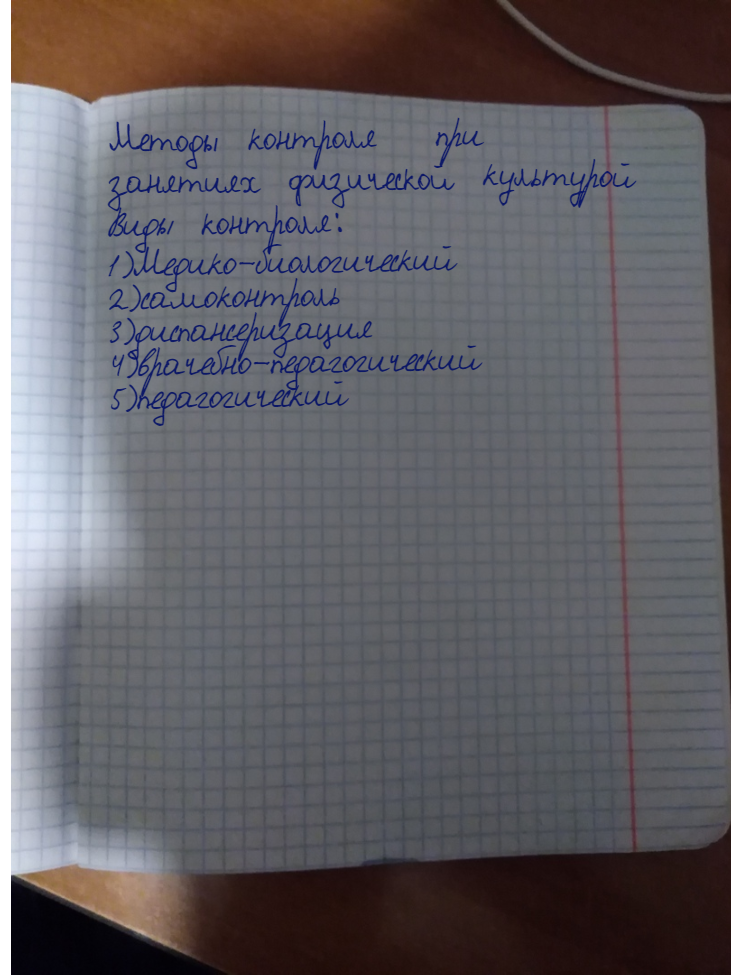 Методы контроля при
занятиях физической культурой
Виды контроля:
1)Медико-биологический
2)самоконтроль
3)диспансеризация
4)врачебно-педагогический
5)педагогический